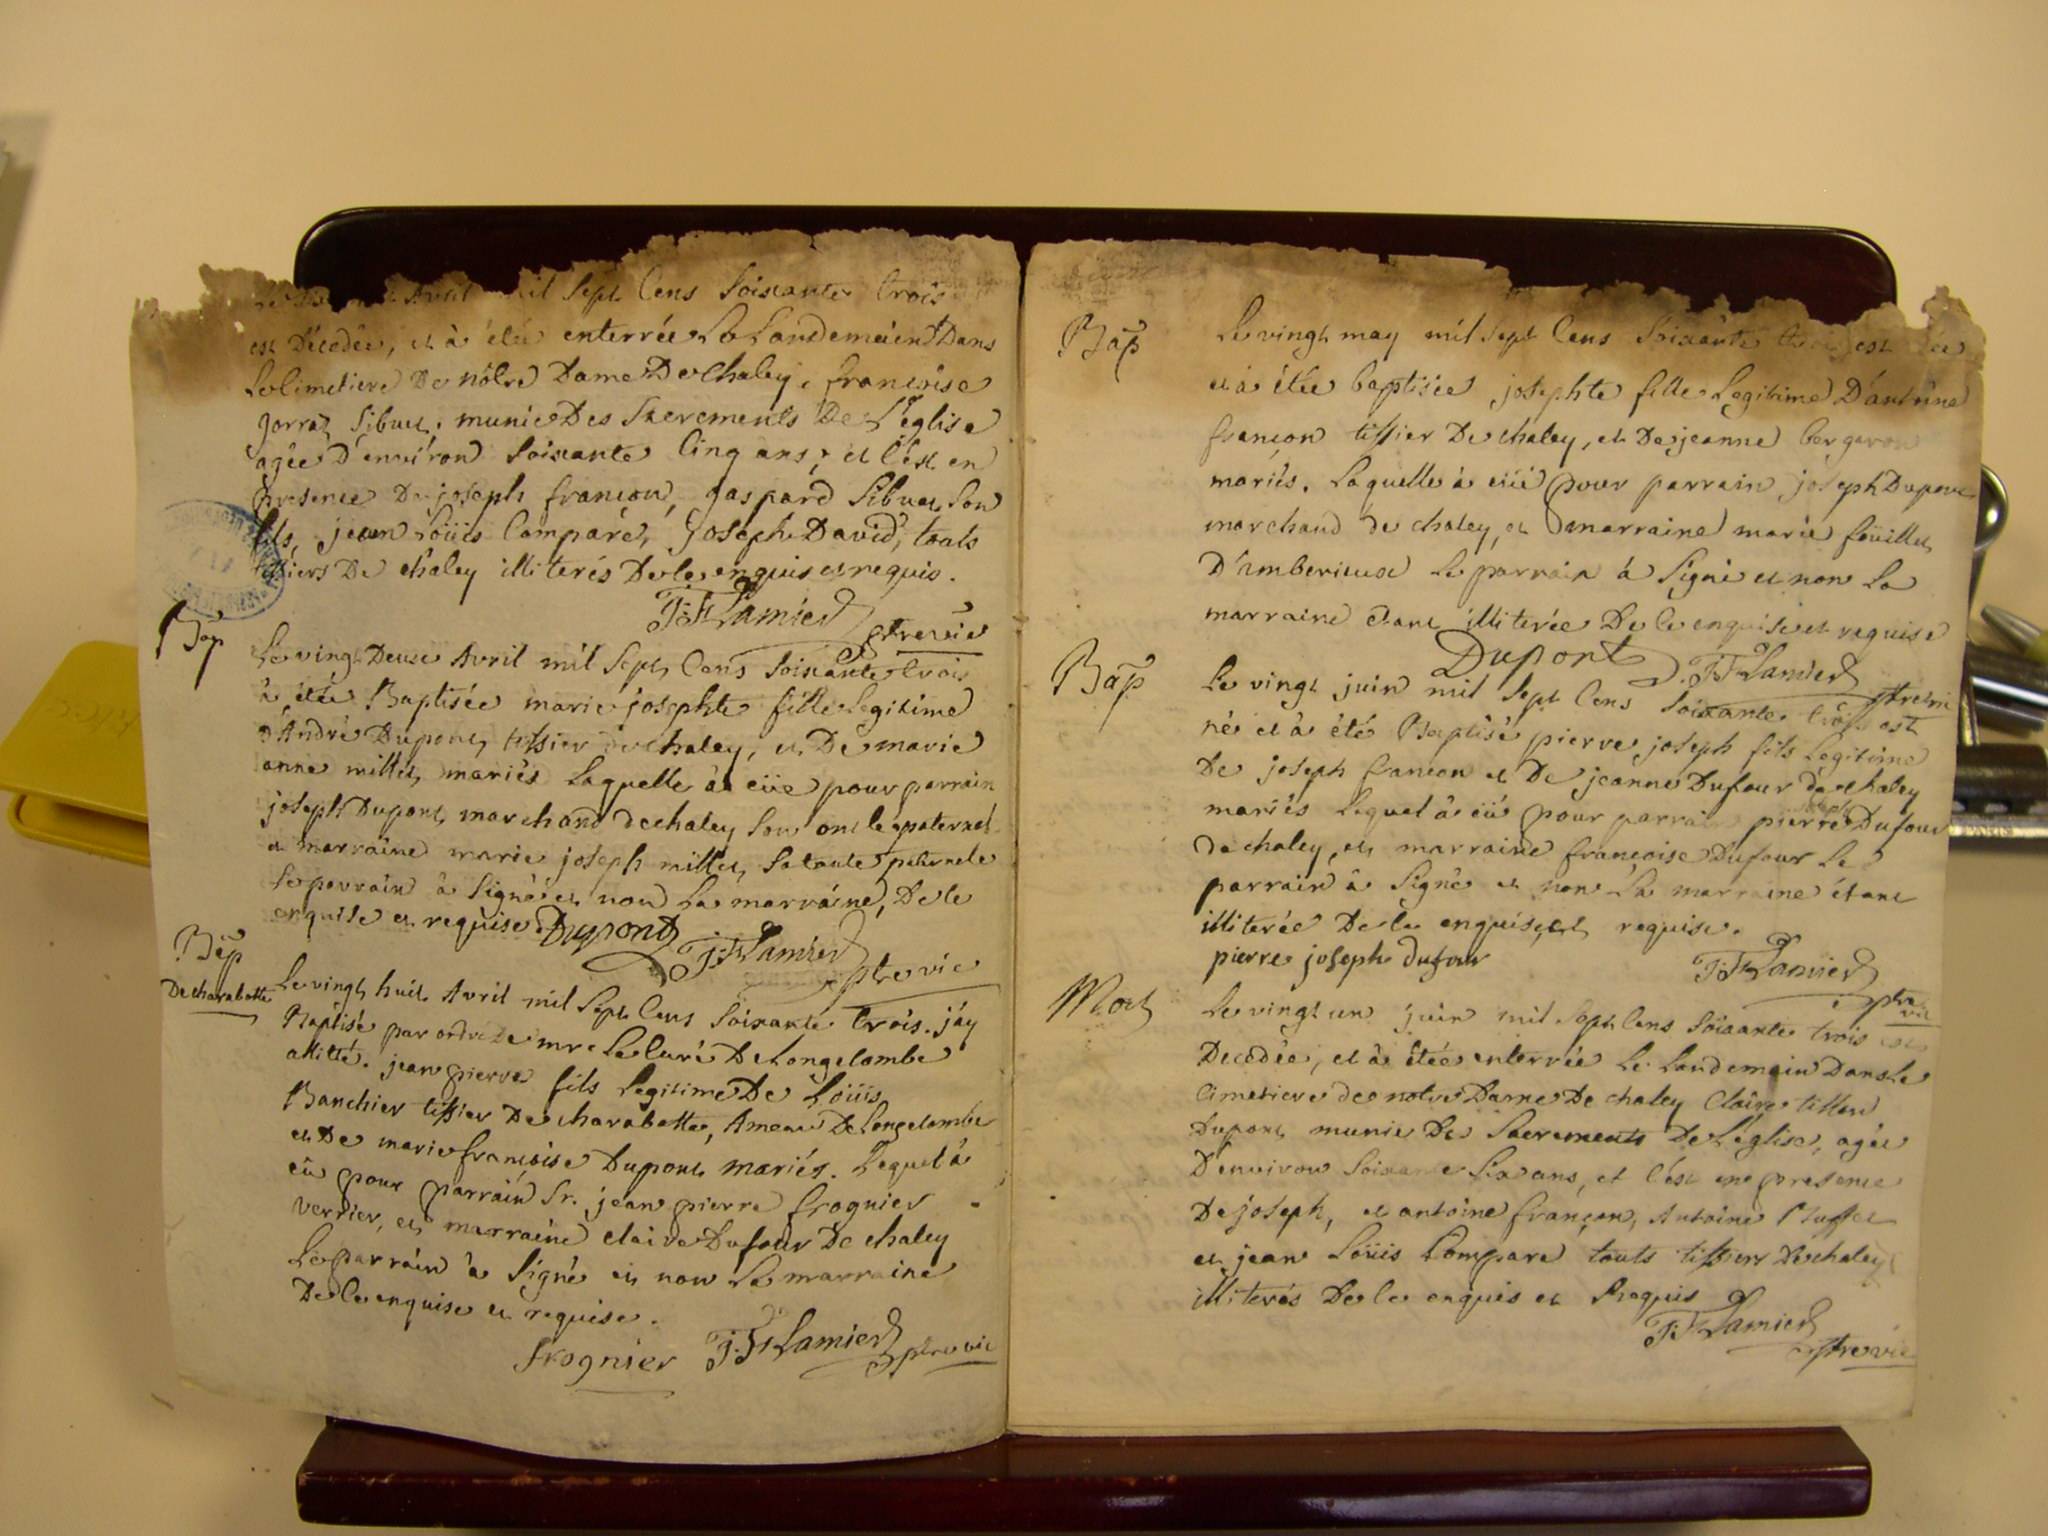 Avril mil Sept Cens Soixante trois
est Décedée, et à étée enterrée Le Landemain Dans
Le Cimetiere De nôtre Dame De Chaley, francoise
Jorraz Sibuet. munie Des Sacrements De L'églis e
agée D'environ Soixante Cinq ans; et C'ést en
presence De joseph francon, gaspard Sibuet Son
fils, jean Loüis Comparé, Joseph David, touts
tissiers De chaley illiterés De le enquis et requis.
J: F Lamier ptre vic
Bap
Le vingt Deux Avril mil Sept Cens Soixante trois
à étée Baptisée marie josephte fille Legitime
d'André Dupont, tissier de chaley, et De marie
anne millet, mariés Laquelle à eüe pour parrain
joseph Dupont, marchand de chaley Son oncle paternel
et marraine marie joseph millet, Sa tante
Le parrain à Signé et non La marraine, De le
enquise et requise Dupont J: F Lamier ptre vic
Bap
De charabotte
Le vingt huit Avril mil Sept Cens Soixante trois. j'ay
Baptisé par ordre De mre Le Curé De Longecombe
jean pierre fils Legitime De Loüis
Banchier tissier De charabotte, Ameau De Longecombe
et De marie francoise Dupont mariés. Lequel à
eû pour parrain Sr. jean pierre frognier
verrier, et marraine claire Dufour De chaley
Le parrain à Signé et non La marraine
De le enquise et requise.
frognier J: F Lamier ptre vic
Bap
Le vingt may mil Sept Cens Soixante trois est née
et à étée baptisée josephte fille Legitime D'antoine
françon tissier De chaley, et De jeanne bergeron
mariés. Laquelle à eüe pour parrain joseph Dupont
marchand de chaley, et marraine marie
D'amberieux Le parrain à Signé et non La
marraine étant illiterée De le enquise et requise
Dupont J: F Lamier ptre vic
Bap
Le vingt juin mil Sept Cens Soixante trois est
né et à été Baptisé pierre joseph fils Legitime
De joseph francon et De jeanne Dufour de chaley
mariés Lequel à eü pour parrain pierre joseph Dufour
de chaley, et marraine françoise Dufour Le
parrain à Signé et non La marraine étant
illiterée De le enquise, et requise.
pierre joseph dufour J: F Lamier ptre vic
Mort
Le vingt un juin mil Sept Cens Soixante trois est
Decedée, et à étée enterrée Le Landemain Dans Le
Cimetiere de notre Dame De chaley Claire
Dupont munie De Sacrements De L'église, agée
D'environ Soixante Six ans, et C'ést en presence
De joseph, et antoine françon, Antoine Buffet
et jean Loüis Compare touts tissiers De chaley
illiterés De le enquis et Requis
J: F Lamier ptre vic